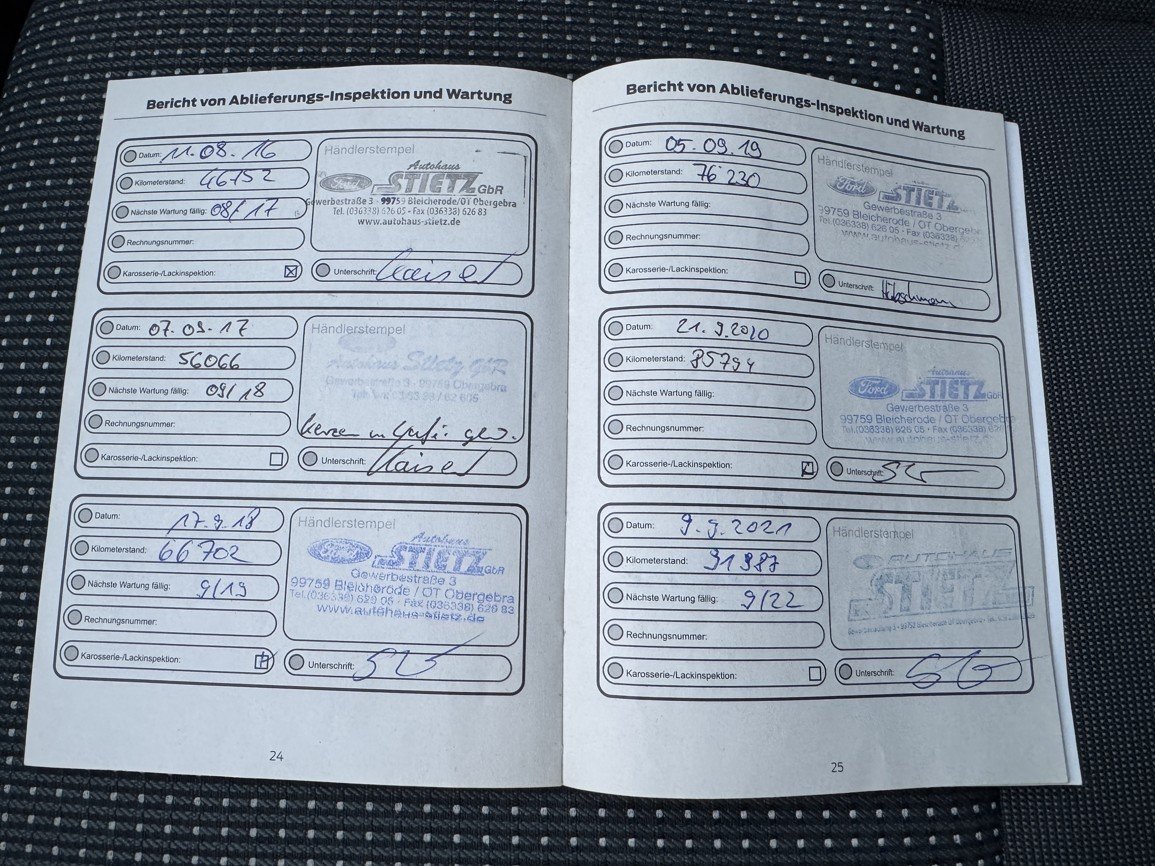 Bericht von Ablieferungs-Inspektion und Wartung
Datum: 11.08.16
Kilometerstand: 46752
Nächste Wartung fällig: 08/17
Rechnungsnummer:
Karosserie-/Lackinspektion:
Händlerstempel
Autohaus
Ford STIETZ GbR
Gewerbestraße 3 · 99759 Bleicherode/OT Obergebra
Tel. (036338) 626 05 · Fax (036338) 626 83
www.autohaus-stietz.de
Unterschrift: Kaiser
Datum: 07.09.17
Kilometerstand: 56066
Nächste Wartung fällig: 09/18
Rechnungsnummer:
Karosserie-/Lackinspektion:
Händlerstempel
Autohaus Stietz GbR
Gewerbestraße 3 · 99759 Bleicherode/OT Obergebra
Kerzen
Unterschrift: Kaiser
Datum: 17.9.18
Kilometerstand: 66702
Nächste Wartung fällig: 9/19
Rechnungsnummer:
Karosserie-/Lackinspektion:
Händlerstempel
Autohaus
Ford STIETZ GbR
Gewerbestraße 3
99759 Bleicherode / OT Obergebra
Tel.(036338) 626 05 · Fax (036338) 626 83
www.autohaus-stietz.de
Unterschrift:
24
Bericht von Ablieferungs-Inspektion und Wartung
Datum: 05.09.19
Kilometerstand: 76 230
Nächste Wartung fällig:
Rechnungsnummer:
Karosserie-/Lackinspektion:
Händlerstempel
Ford STIETZ
Gewerbestraße 3
99759 Bleicherode / OT Obergebra
Tel.(036338) 626 05 · Fax (036338)
www.autohaus-stietz.d
Unterschrift:
Datum: 21.9.2020
Kilometerstand: 85794
Nächste Wartung fällig:
Rechnungsnummer:
Karosserie-/Lackinspektion:
Händlerstempel
Autohaus
Ford STIETZ GbR
Gewerbestraße 3
99759 Bleicherode / OT Obergebra
Tel.(036338) 626 05 · Fax (036338) 62
www.autohaus-stietz.d
Unterschrift:
Datum: 9.9.2021
Kilometerstand: 91987
Nächste Wartung fällig: 9/22
Rechnungsnummer:
Karosserie-/Lackinspektion:
Händlerstempel
AUTOHAUS
STIETZ
99752 Bleicherode OT Obergebra
Unterschrift:
25